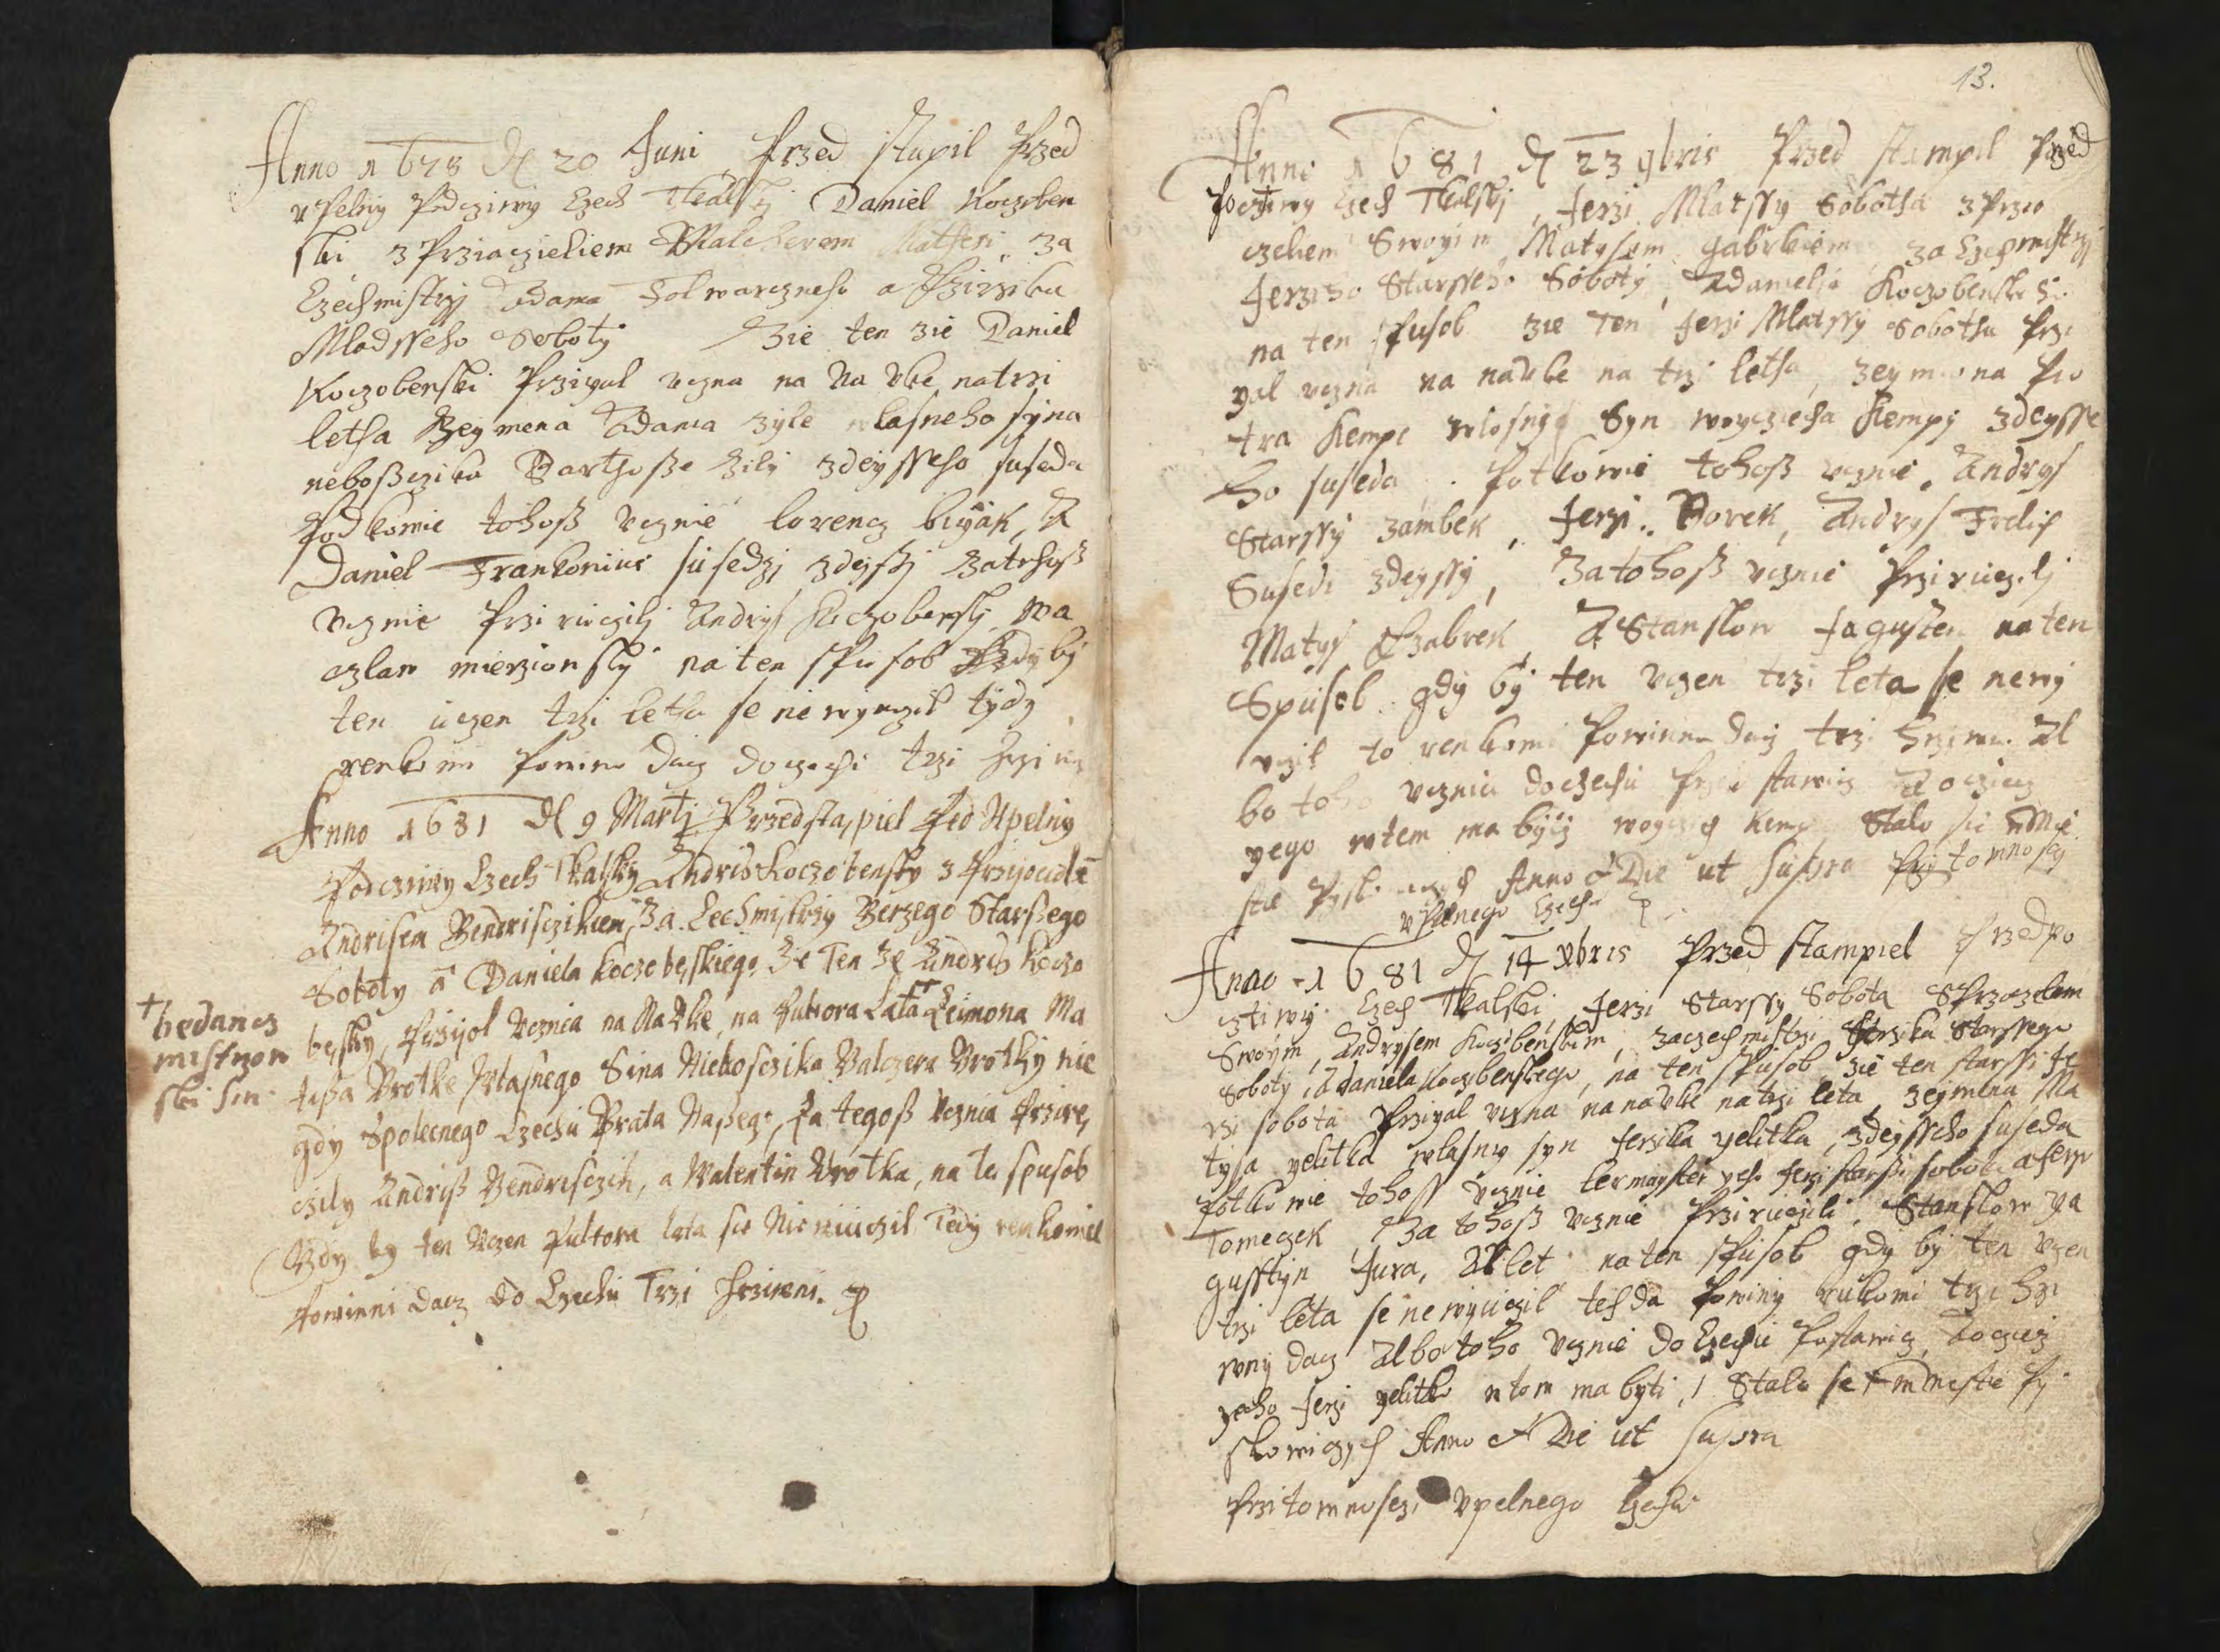 Anno 1678 D 20 Juni Przed stupil Przed
upelny Podcziwy Czech Tkalsky Daniel Koczoben
ski z Prziaczieliem Malcherem Mathesi za
Czechmistrzj Adama Folwarczneho a Jirzika
Mlodsseho Soboty Zie ten zie Daniel
Koczobenski Przigal uczna na Na uke na trzi
letha Zeymena Adama zyle wlasneho syna
neboszczika Barthosse Zily zdeysseho suseda
Podkowie tohoß ucznie lorencz biyak, A
Daniel Frankonius susedzj zdejssj Zatehoß
Ucznie Przi ruczilj Andrys Koczoberskj, wa
czlaw mierzionsky na ten spusob Gdyby
ten uczen trzi letha se ne wyuczil tydy
renkomi Powinni dacz doczechi trzi hrziwny
Anno 1681 D 9 Martj Przedstapiel Pred Upelny
Podcziwy Czech Tkalsky Andris Koczobensky z Przijaciele
Andrisem Bendrisczikiem, Za Cechmistrzy Jerzego Starßego
Soboty a Daniela Koczobęskiego. Że Ten Ze Andris Koczo
bęsky, Przijol Ucznia na Nauke, na Pultora Lata †† Zeimona Ma
+ bedancz
mistrzow
ski sin
tißa Wrotke Wlasnego Sina Nieboszczika Balczera Wrotky nie
gdy Spolecnego Czechu Brata Naßego, Za tegoß Ucznia Przirę
czily Andriß Bendrisczik, a Walentin Wrotka, na te spusob
Gdy by ten Uczen Pultora lata sie Nie wiuczil Tedy renkomie
Powinni dacz do Czechu Trzi Hrziwni.
13.
Anno 1681 D 23 9bris Przed stampil Przed
Pocztiwy Czech Tkalskj, Jerzi Mlatssy Sobotha z Przia
czelem Swoyim, Matysem Gabrkiem za Czechmistrzj
Jerziho Starsseho Soboty, A daniela Koczobenskeho
na ten spusob zie Ten Jerzi Mlatssy Sobotha Przi
yal uczna na nauke na trzi letha, zeymena Pio
tra Kempe wlasnyg Syn woyczieha Kempy zdeysse
ho suseda. Potkowie tohoß ucznie, Andrys
Starssy zambek, Jerzi Borek, Andrys Frelich
Susedi zdeyssy, Zatohoß ucznie Przi ruczilj
Matys Gabrek A Stanslow Jagusten na ten
Spusob gdy by ten uczen trzi leta se newy
uczil to renkomi Powinni dacz trzi hrziwni Al
bo toho ucznia doczechu Przed stawicz A oczicz
yego wtem ma byycz woyczech Kempa Stalo sie w Mie
stie Anno & Die ut Supra Przytomnosczi
upelnego Czechu
Anno 1681 D 14 Xbris Przed stampiel Przed po
cztiwy Czech Tkalski, Jerzi Starssy Sobota S Przaczelem
Swoym, Andrysem Koczobenskim, zaczechmistrzi Jerzika Starssego
Soboty, A daniela Koczobenskego, na ten spusob zie ten starssi Je
rzi sobota Przigal uczna na nauke natrzi leta, zeymena Ma
tysa yelitka wlasny syn Jerzika yelitka, zdeysseho suseda
Potkowie tohoss ucznie lermayster yeho Jerzi starssi sobota a Jerzi
Tomeczek Zatohoß ucznie Przi ruczili, Stanslow Ja
gusstyn Jura, Allet na ten spusob gdy by ten uczen
trzi leta se newyuczil tehda Powiny rukomi trzi hrzi
wny dacz Albo toho ucznie do Czechu Postawicz, A oczicz
yeho Jerzi yelitko wtom ma byti, Stalo se w Mestie Py
skowiczych Anno & Die ut Supra
Przitomnosczi upelnego Czechu